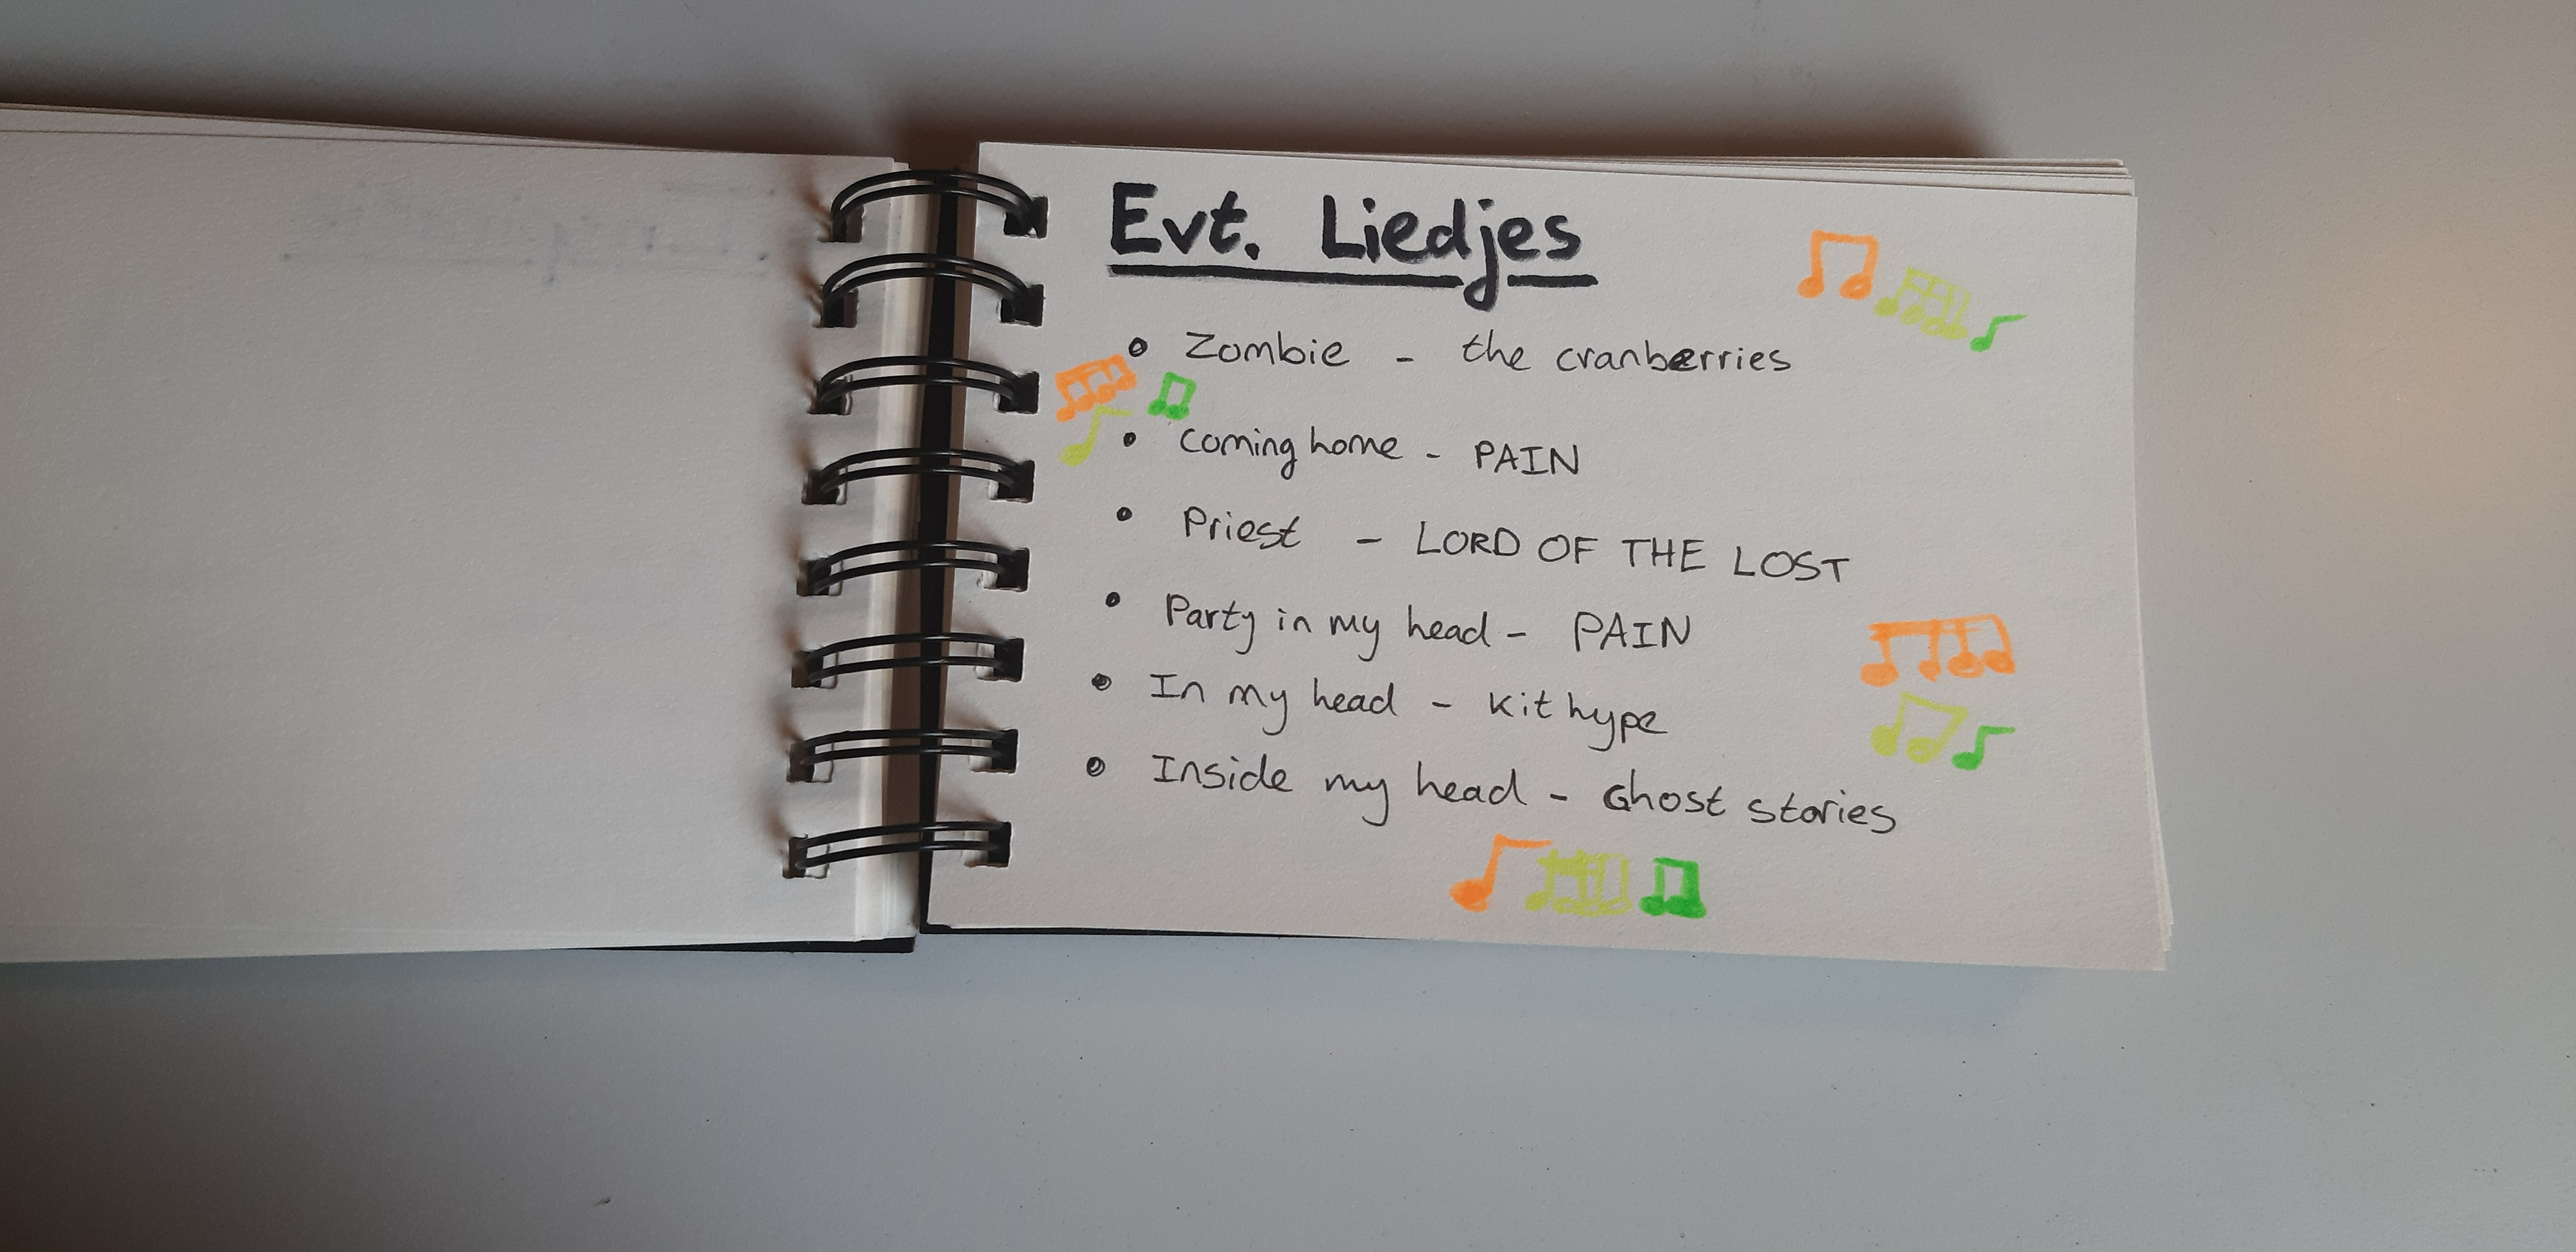 Evt. Liedjes
• Zombie - the cranberries
• Coming home - PAIN
• Priest - LORD OF THE LOST
• Party in my head - PAIN
• In my head - Kit hype
• Inside my head - Ghost stories